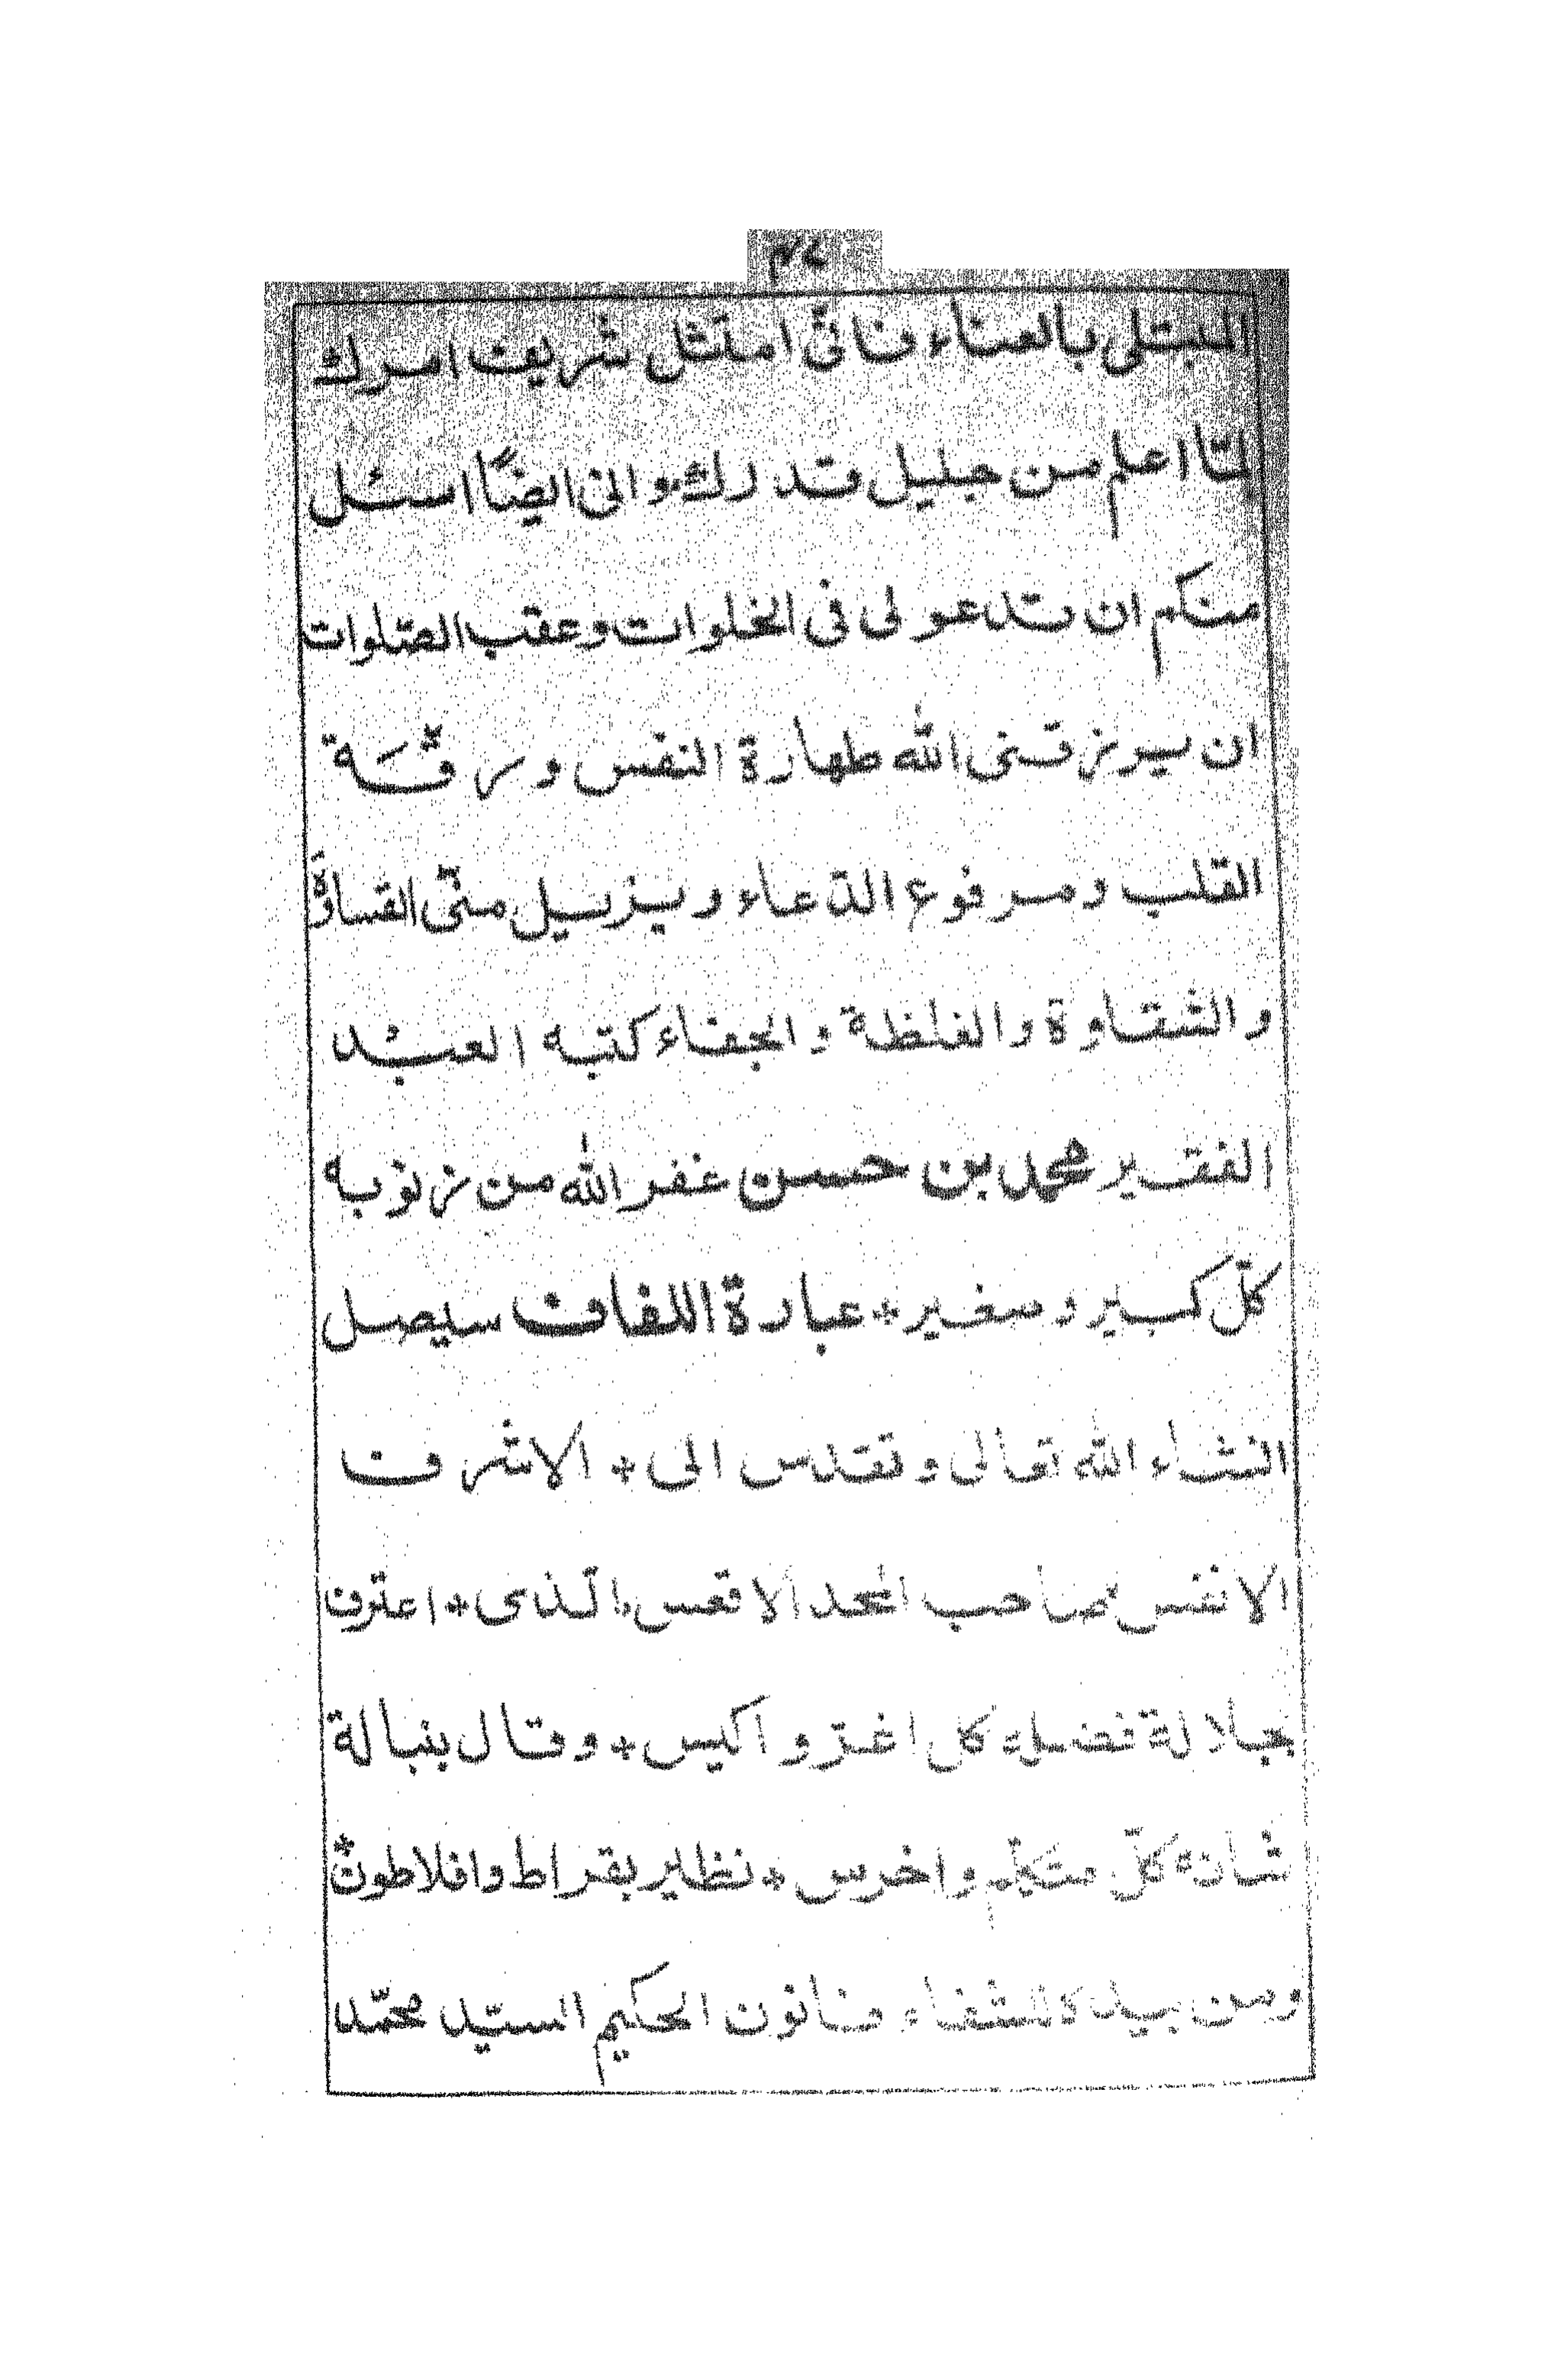 المبتلى بالعناء فانّى امتثل شريف امرك
لمّا اعلم من جليل قدرك والى ايضًا اسئل
منكم ان تدعو لى فى الخلوات وعقب الصّلوات
ان يرزقنى الله طهارة النفس ورقّة
القلب ومرفوع الدّعاء ويزيل منّى القساوة
والشقاوة والغلظة والجفاء كتبه العبد
الفقير محمد بن حسن غفر الله من زنوبه
كلّ كبير وصغير * عبارة اللفاف سيصل
انشاء الله تعالى وتقدس الى * الاشرف
الانفس صاحب المجد الاقعس الّذى * اعترف
بجلالة فضله كل اغتر واكيس * وقال بنبالة
شانه كلّ متكلّم واخرس * نظير بقراط وافلاطون *
ومن بيده للشفاء قانون الحكيم السيّد محمّد